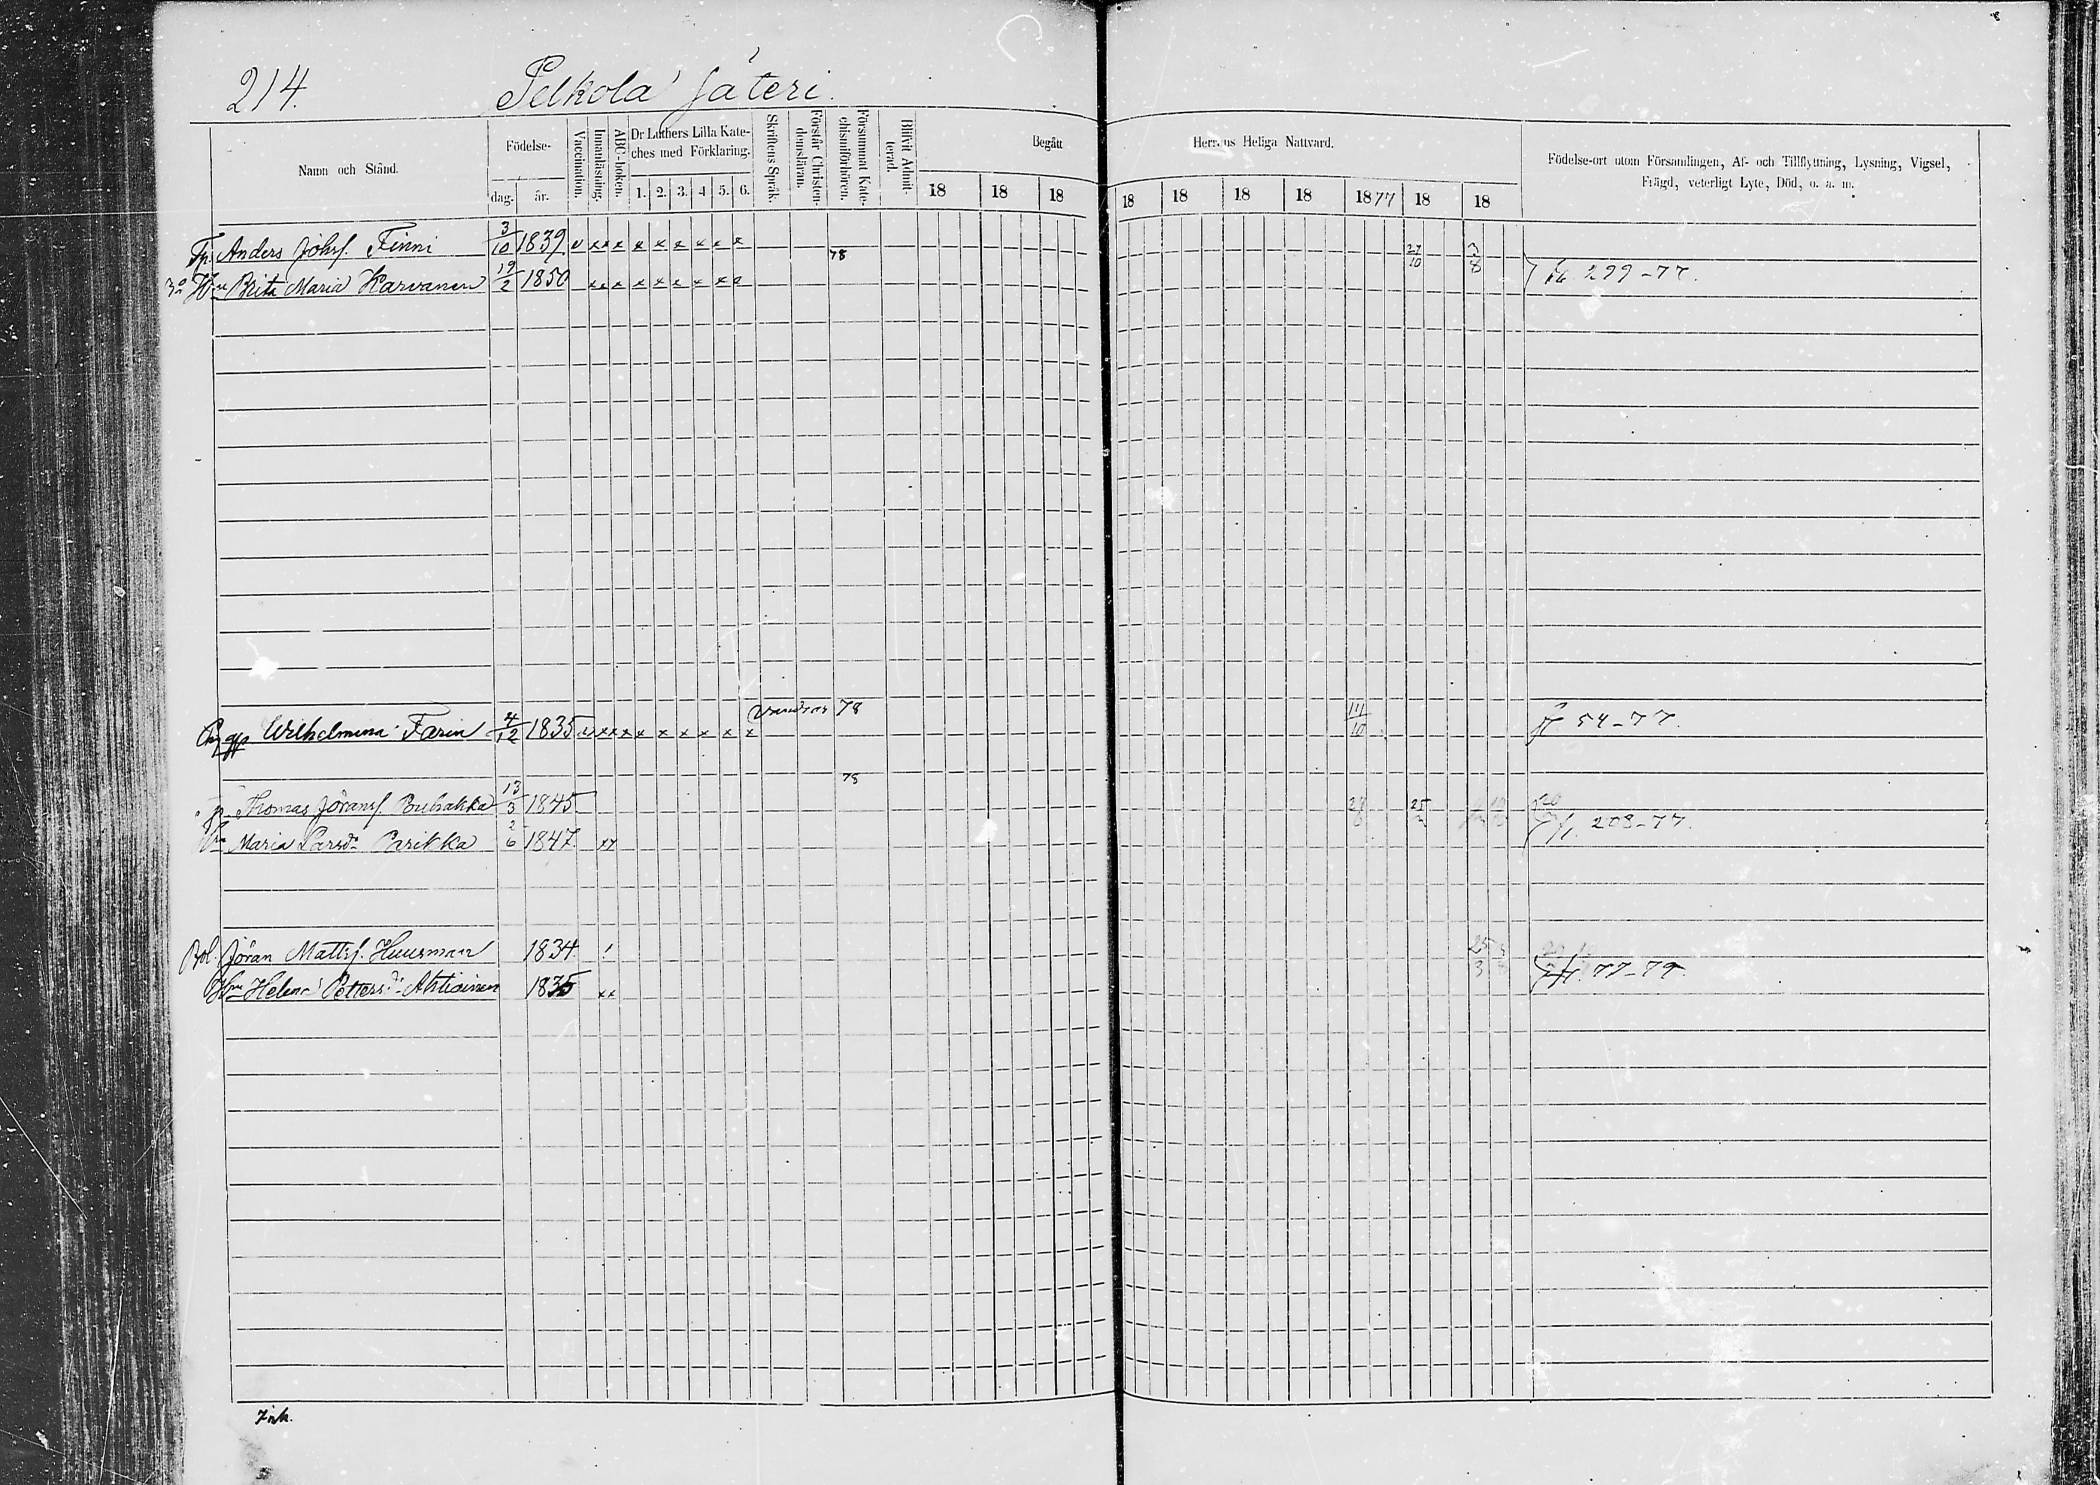 214.
Pelkola Säteri.
Namn och Stånd.
Födelse-
dag. år.
Vaccination.
Innanläsning.
ABC-boken.
Dr Luthers Lilla Kate-
ches med Förklaring.
1. 2. 3. 4 5. 6.
Skriftens Språk.
Förstår Christen-
domsläran.
Försummat Kate-
chismiförhören.
Blifvit Admit-
terad.
Begått
Herrans Heliga Nattvard.
18 18 18 18 18 18 18 1877 18 18
Födelse-ort utom Församlingen, Af- och Tillflyttning, Lysning, Vigsel,
Frägd, veterligt Lyte, Död, o. s. m.
Anders Johsf. Finni 3/10 1839 v x x x x x x x x x 78 27/10 3/8
Hu Brita Maria Karvanen 19/2 1850 x x x x x x x x 299-77.
Wilhelmina Farin 4/12 1835 v x x x x x x x x x 78 11/10 54-77.
Thomas Göransf. Buhakka 13/3 1845 78 25
Hu Maria Larsdr Parikka 2/6 1847 xx 208-77.
Göran Mattsf. Huusman 1834 ! 25/3
Hu Helena Pettersdr Ahtiainen 1835 xx 77-79.